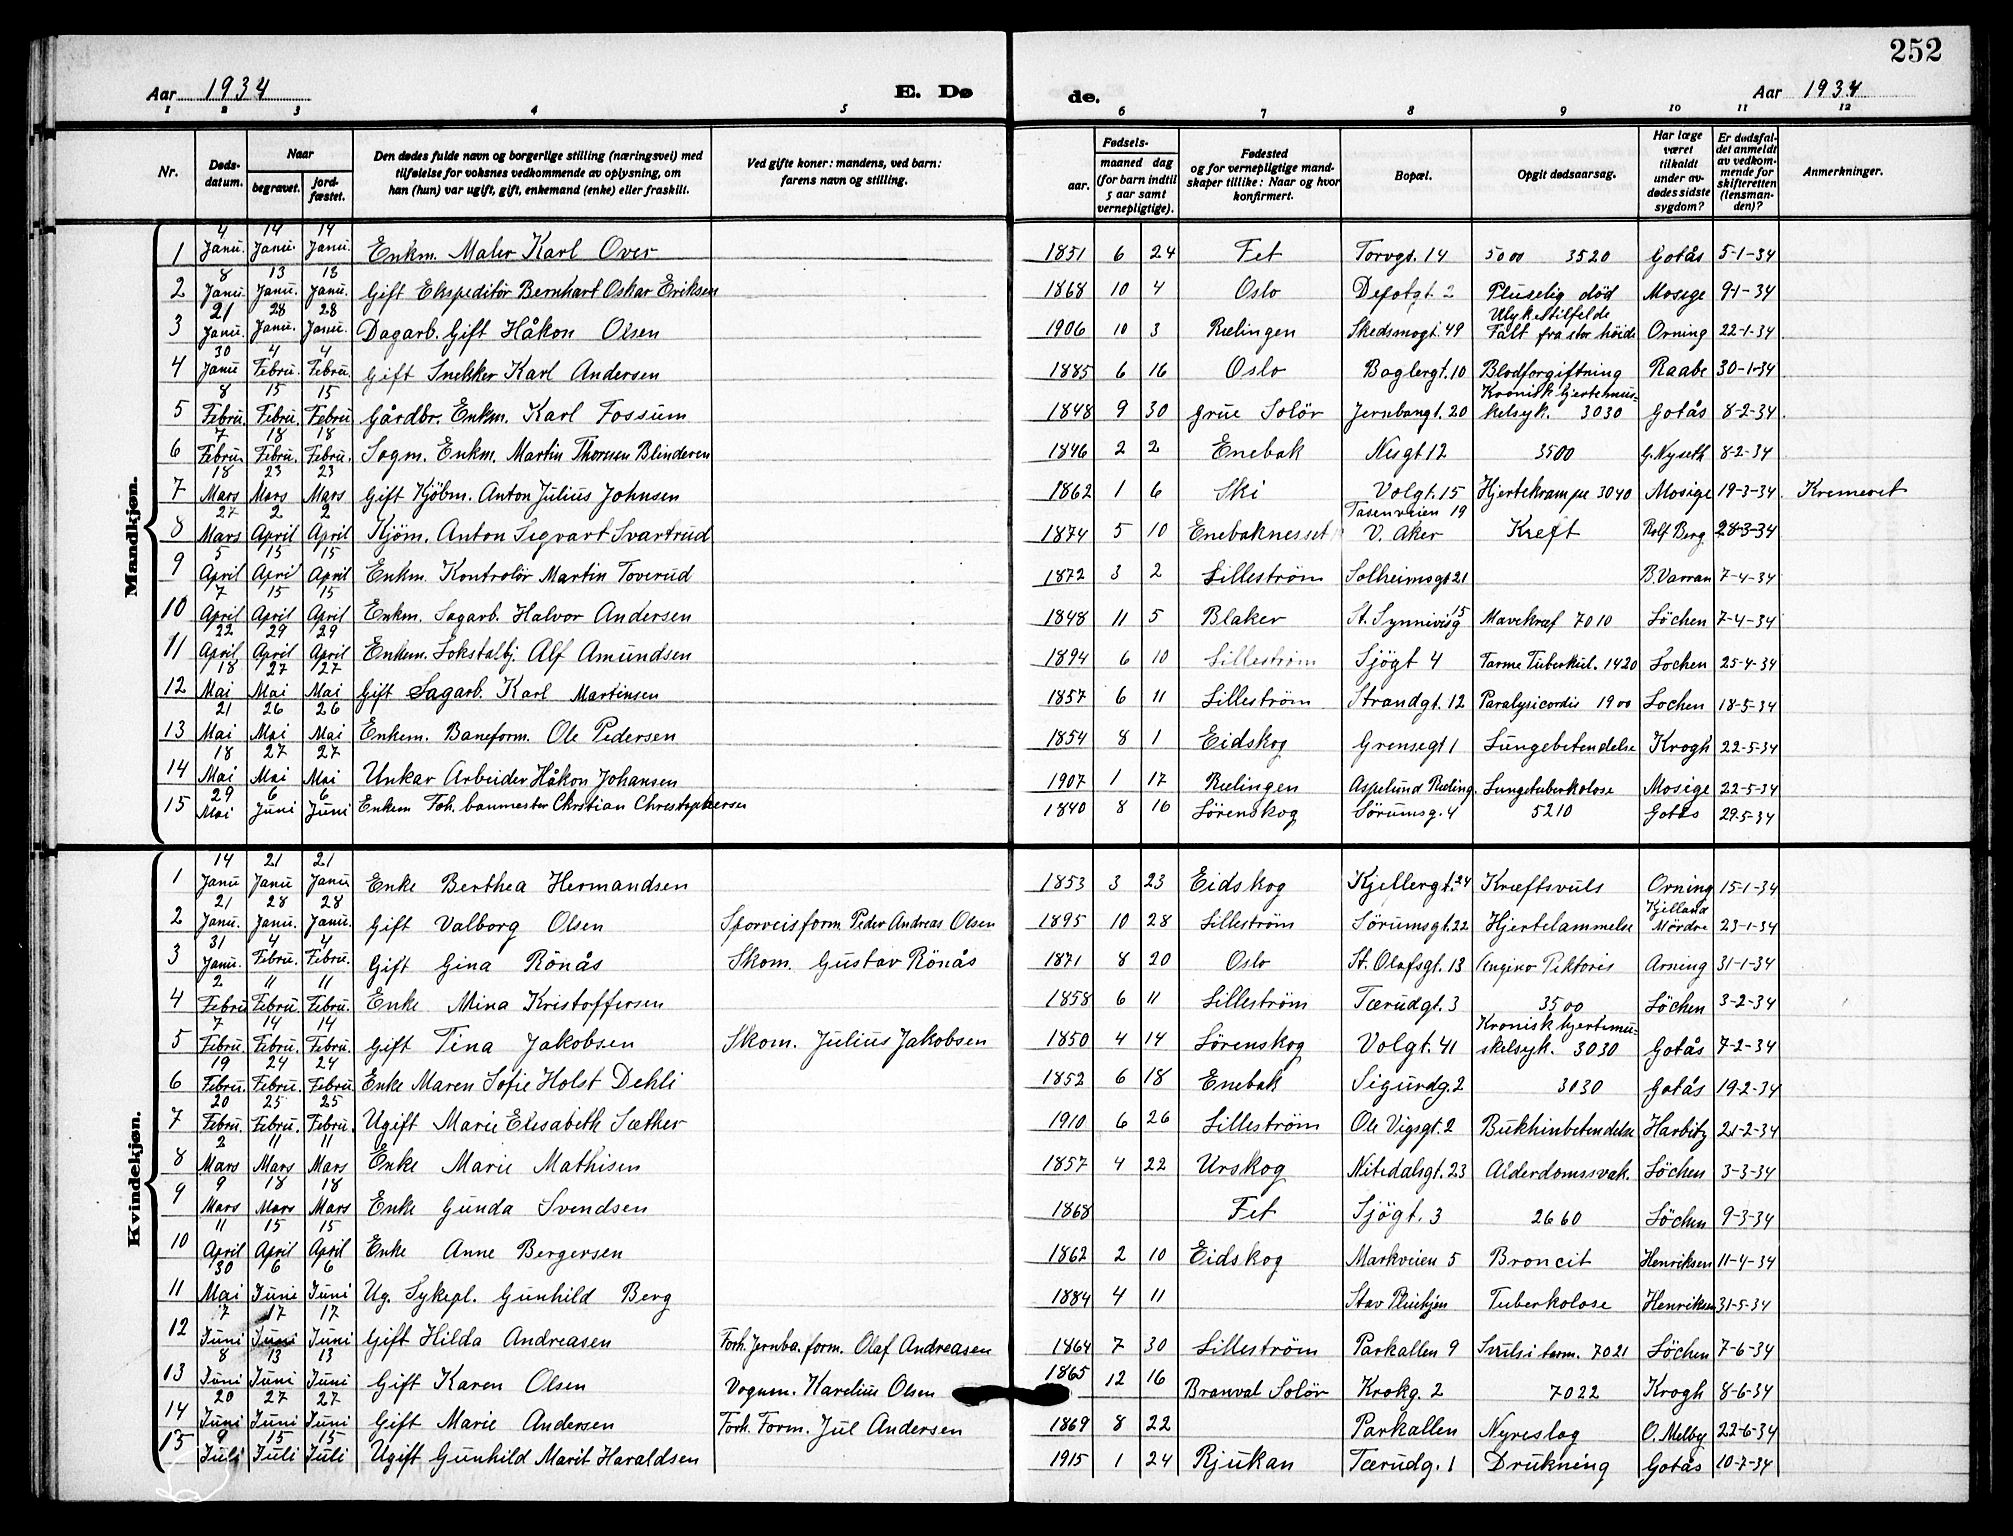 252
Aar 1934 E. Dø de. Aar 1934
1 2 3 4 5 6 7 8 9 10 11 12
Nr. Døds-datum. Naar begravet. jord-fæstet. Den dødes fulde navn og borgerlige stilling (næringsvei) med tilføielse for voksnes vedkommende av oplysning, om han (hun) var ugift, gift, enkemand (enke) eller fraskilt. Ved gifte koner: mandens, ved barn: farens navn og stilling. Fødsels- aar. maaned dag (for barn indtil 5 aar samt vernepligtige). Fødested og for vernepligtige mand-skaper tillike: Naar og hvor konfirmert. Bopæl. Opgit dødsaarsag. Har læge været tilkaldt under av-dødes sidste sygdom? Er dødsfal-det anmeldt av vedkom-mende for skifteretten (lensman-den)? Anmerkninger.
Mandkjøn.
1 4 Janu. 14 Janu. 14 Janu. Enkm. Maler Karl Over 1851 6 24 Fet Torvgt. 14 5000 3520 Gotås 5-1-34
2 8 Janu. 13 Janu. 13 Janu. Gift Ekspeditör Bernhart Oskar Eriksen 1868 10 4 Oslo Depotgt. 2 Pluselig död Mosige 9-1-34
3 21 Janu. 28 Janu. 28 Janu. Dagarb. Gift Håkon Olsen 1906 10 3 Rælingen Skedsmogt. 49 Ulykestilfelde Falt fra stor höide Orning 22-1-34
4 30 Janu 4 Febru. 4 Febru. Gift Snekker Karl Andersen 1885 6 16 Oslo Baglergt. 10 Blodforgiftning Raabe 30-1-34
5 8 Febru. 15 Febru. 15 Febru. Gårdbr. Enkm. Karl Fossum 1848 9 30 Grue Solör Jernbangt. 20 Kronisk hjertemus-kelsyk. 3030 Gotås 8-2-34
6 7 Febru. 18 Febru. 18 Febru. Sagm. Enkm. Martin Thorsen Blinderen 1846 2 2 Enebak Nesgt 12 3500 G. Nyseth 8-2-34
7 18 Mars 23 Mars 23 Mars Gift Kjöbm. Anton Julius Johnsen 1862 1 6 Ski Volgt. 15 Hjertekrampe 3040 Mosige 19-3-34 Kremeret
8 27 Mars 2 April 2 April Kjöm. Anton Sigvart Svartrud 1874 5 10 Enebaknesset Tasenveien 19 V. Aker Kreft Rolf Berg 28-3-34
9 5 April 15 April 15 April Enkm. Kontrolör Martin Toverud 1872 3 2 Lilleström Solheimsgt 21 B. Varran 7-4-34
10 7 April 15 April 15 April Enkm. Sagarb. Halvor Andersen 1848 11 5 Blaker St. Synnivisg 15 Mavekræf 7010 Löchen 7-4-34
11 22 April 29 April 29 April Enkem. Lokstalbj. Alf Amundsen 1894 6 10 Lilleström Sjögt 4 Tarme Tuberkul. 1420 Lochen 25-4-34
12 18 Mai 27 Mai 27 Mai Gift Sagarb. Karl Martinsen 1857 6 11 Lilleström Strandgt. 12 Paralysicordis 1900 Lochen 18-5-34
13 21 Mai 26 Mai 26 Mai Enkem. Baneform. Ole Pedersen 1854 8 1 Eidskog Grensegt 1 Lungebetendelse Krogh 22-5-34
14 18 Mai 27 Mai 27 Mai Unkar Arbeider Håkon Johansen 1907 1 17 Rælingen Aspelund Ræling. Lungetuberkolose Mosige 22-5-34
15 29 Mai 6 Juni 6 Juni Enkem Foh. banmester Christian Christophersen 1840 8 16 Lörenskog Sörumsg. 4 5210 Gotås 29-5-34
Kvindekjøn.
1 14 Janu 21 Janu 21 Janu Enke Berthea Hermandsen 1853 3 23 Eidskog Kjellergt. 24 Kræftsvuls Orning 15-1-34
2 21 Janu. 28 Janu. 28 Janu. Gift Valborg Olsen Sporveisform Peder Andreas Olsen 1895 10 28 Lilleström Sörumsgt. 22 Hjertelammelse Kjelland Mördre 23-1-34
3 31 Janu. 4 Febru. 4 Febru. Gift Gina Rönås Skom. Gustav Rönås 1871 8 20 Oslo St. Olafsgt. 13 Angino Pektoris Arning 31-1-34
4 2 Febru 11 Febru. 11 Febru. Enke Mina Kristoffersen 1858 6 11 Lilleström Tærudgt. 3 3500 Löchen 3-2-34
5 7 Febru. 14 Febru. 14 Febru. Gift Tina Jakobsen Skom. Julius Jakobsen 1850 4 14 Lörenskog Volgt. 41 Kronisk hjertemu-skelsyk. 3030 Gotås 7-2-34
6 19 Febru. 24 Febru. 24 Febru Enke Maren Sofie Holst Dehli 1852 6 18 Enebak Sigurdg. 2 3030 Gotås 19-2-34
7 20 Febru. 25 Febru. 25 Febru. Ugift Marie Elisabeth Sæther 1910 6 26 Lilleström Ole Vigsgt. 2 Bukhinbetendelse Harbitz 21-2-34
8 2 Mars 11 Mars 11 Mars Enke Marie Mathisen 1857 4 22 Urskog Nitedalsgt. 23 Alderdomssvak. Löchen 3-3-34
9 9 Mars 18 Mars 18 Mars Enke Gunda Svendsen 1868 Fet Sjögt. 3 2660 Löchen 9-3-34
10 11 April 15 April 15 April Enke Anne Bergersen 1862 2 10 Eidskog Markveien 5 Broncit Henriksen 11-4-34
11 30 Mai 6 Juni 6 Juni Ug. Sykepl. Gunhild Berg 1884 4 11 Stav Tuberkolose Henriksen 31-5-34
12 7 Juni 17 Juni 17 Juni Gift Hilda Andreasen Forh. Jernba. form. Olaf Andreasen 1864 7 30 Lilleström Parkallen 9 Svuls i tarm. 7021 Löchen 7-6-34
13 8 Juni 13 Juni 13 Juni Gift Karen Olsen Vognm. Karelius Olsen 1865 12 16 Branval Solör Krokg. 2 7022 Krogh 8-6-34
14 20 Juni 27 Juni 27 Juni Gift Marie Andersen Forh. Form. Jul Andersen 1869 8 22 Parkallen Nyreslag O. Melby 22-6-34
15 9 Juli 15 Juli 15 Juli Ugift Gunhild Marit Haraldsen 1915 1 24 Rjukan Tærudg. 1 Drukning Gotås 10-7-34